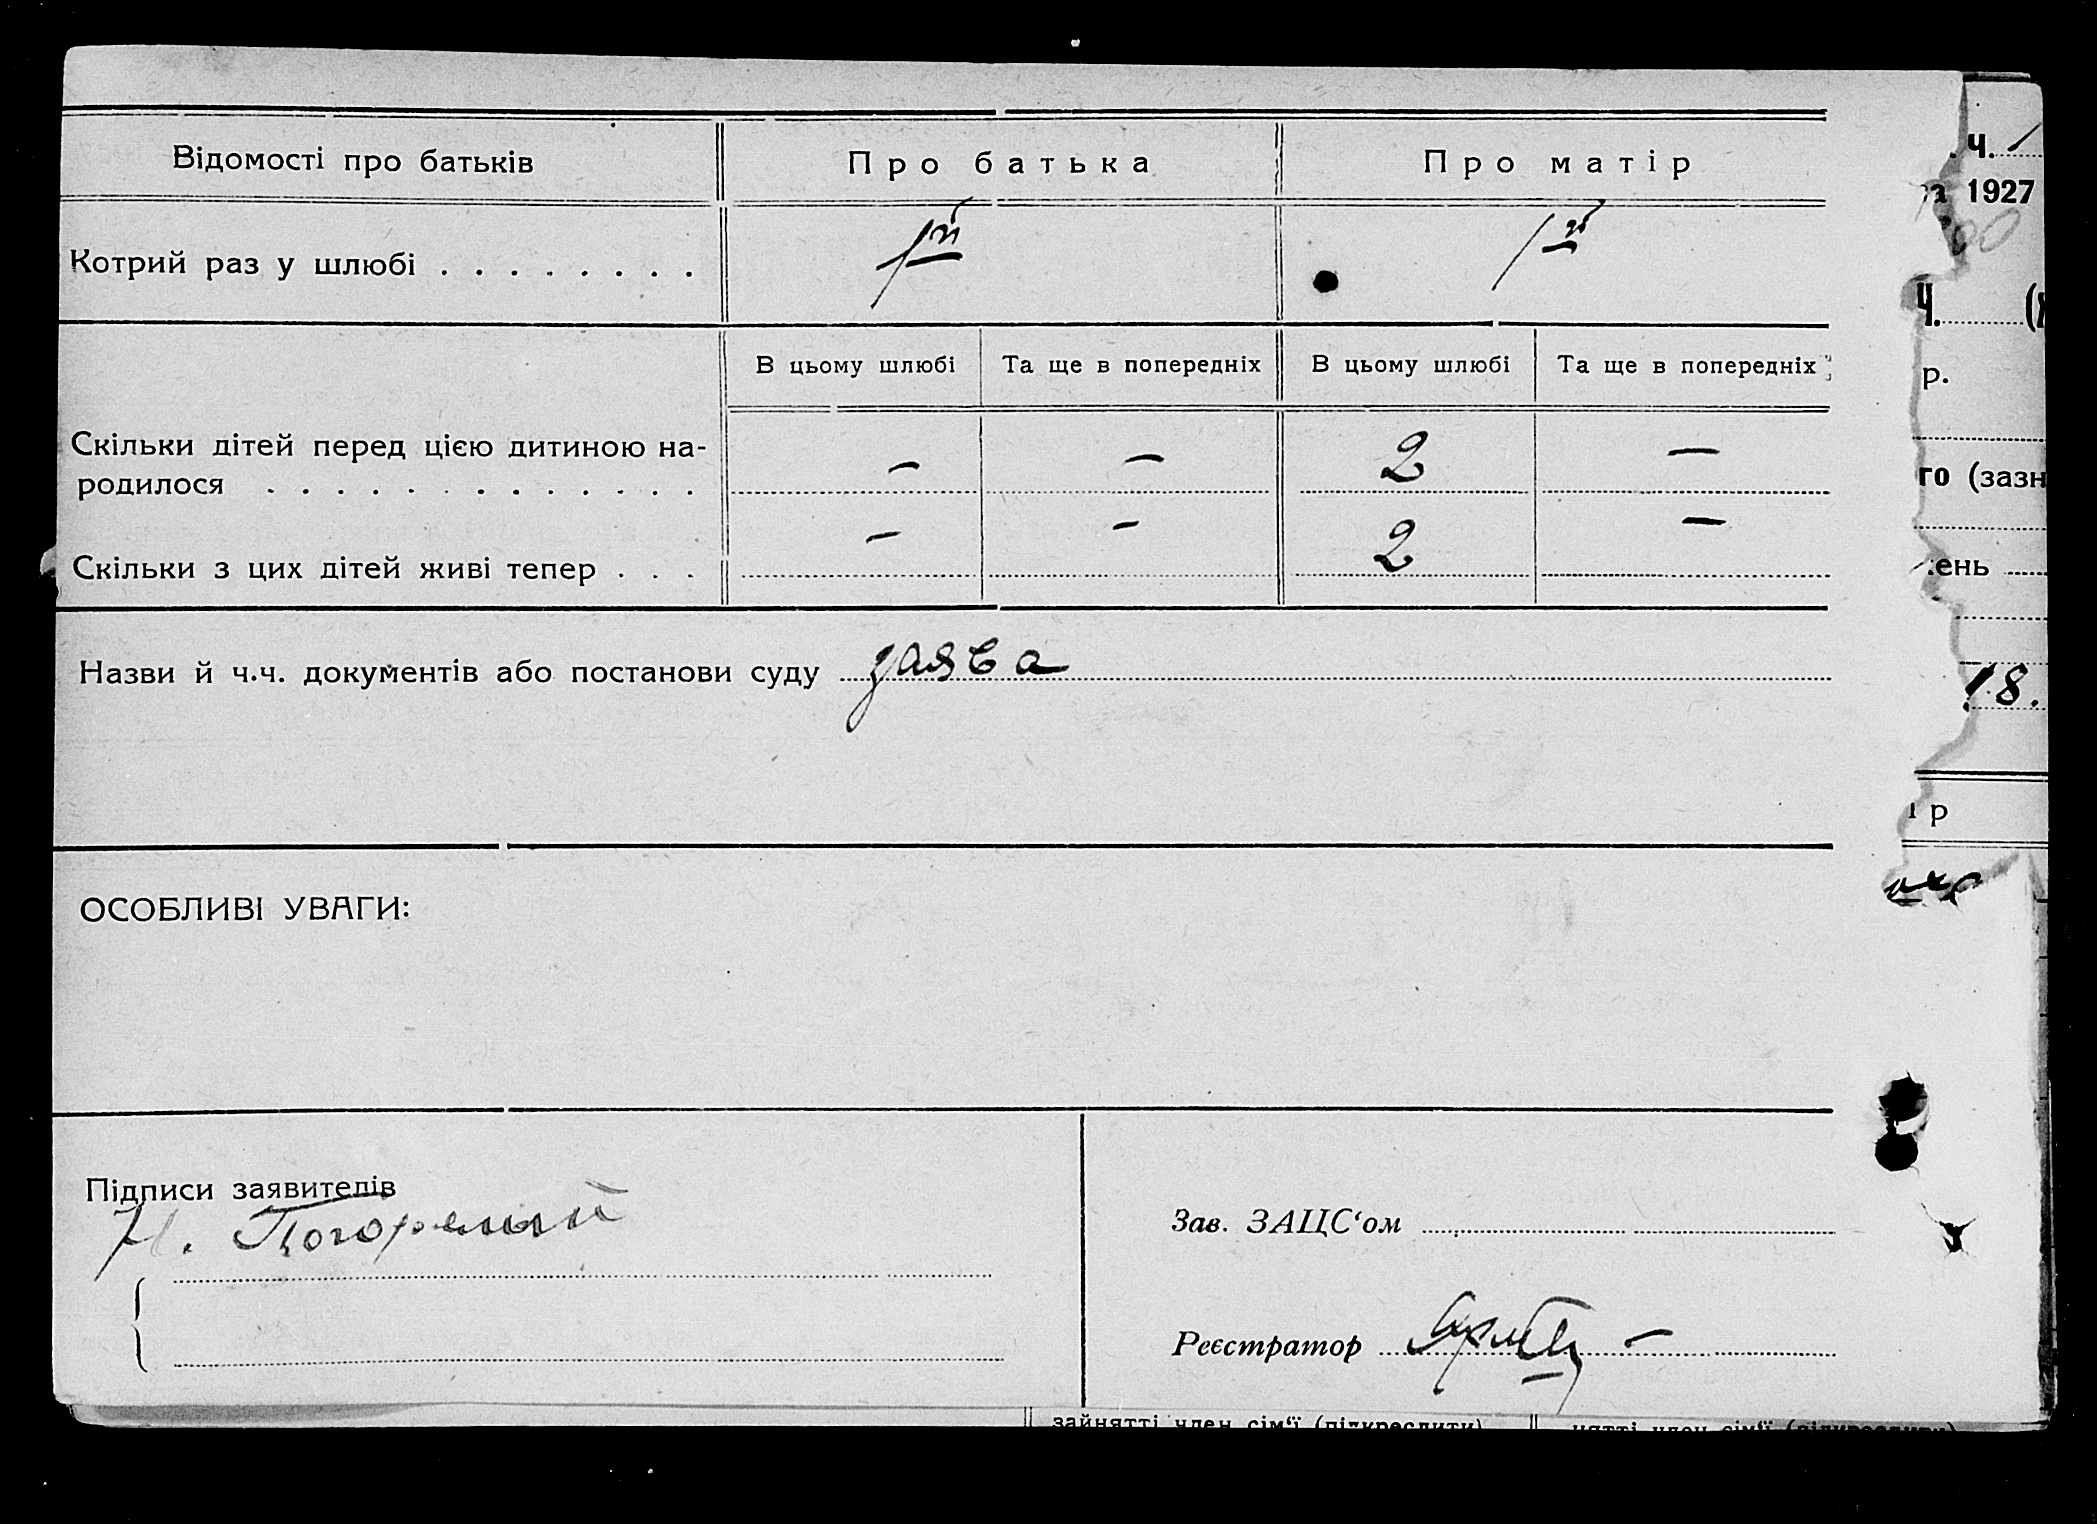 Відомості про батьків Про батька Про матір
Котрий раз у шлюбі . . . . . . . . 1й 1й
В цьому шлюбі Та ще в попередніх В цьому шлюбі Та ще в попередніх
Скільки дітей перед цією дитиною на-
родилося . . . . . . . . . . . . . – – 2 –
Скільки з цих дітей живі тепер . . . – – 2 –
Назви й ч.ч. документів або постанови суду заява
ОСОБЛИВІ УВАГИ:
Підписи заявителів
Н. Погорелый
Зав. ЗАЦС‘ом
Реєстратор
ч.
1927
Ч.
р.
го (зазн
ень
18.
і р
зайнятті член сім‘ї (підкреслити)
нятті член сім‘ї (підкреслити)